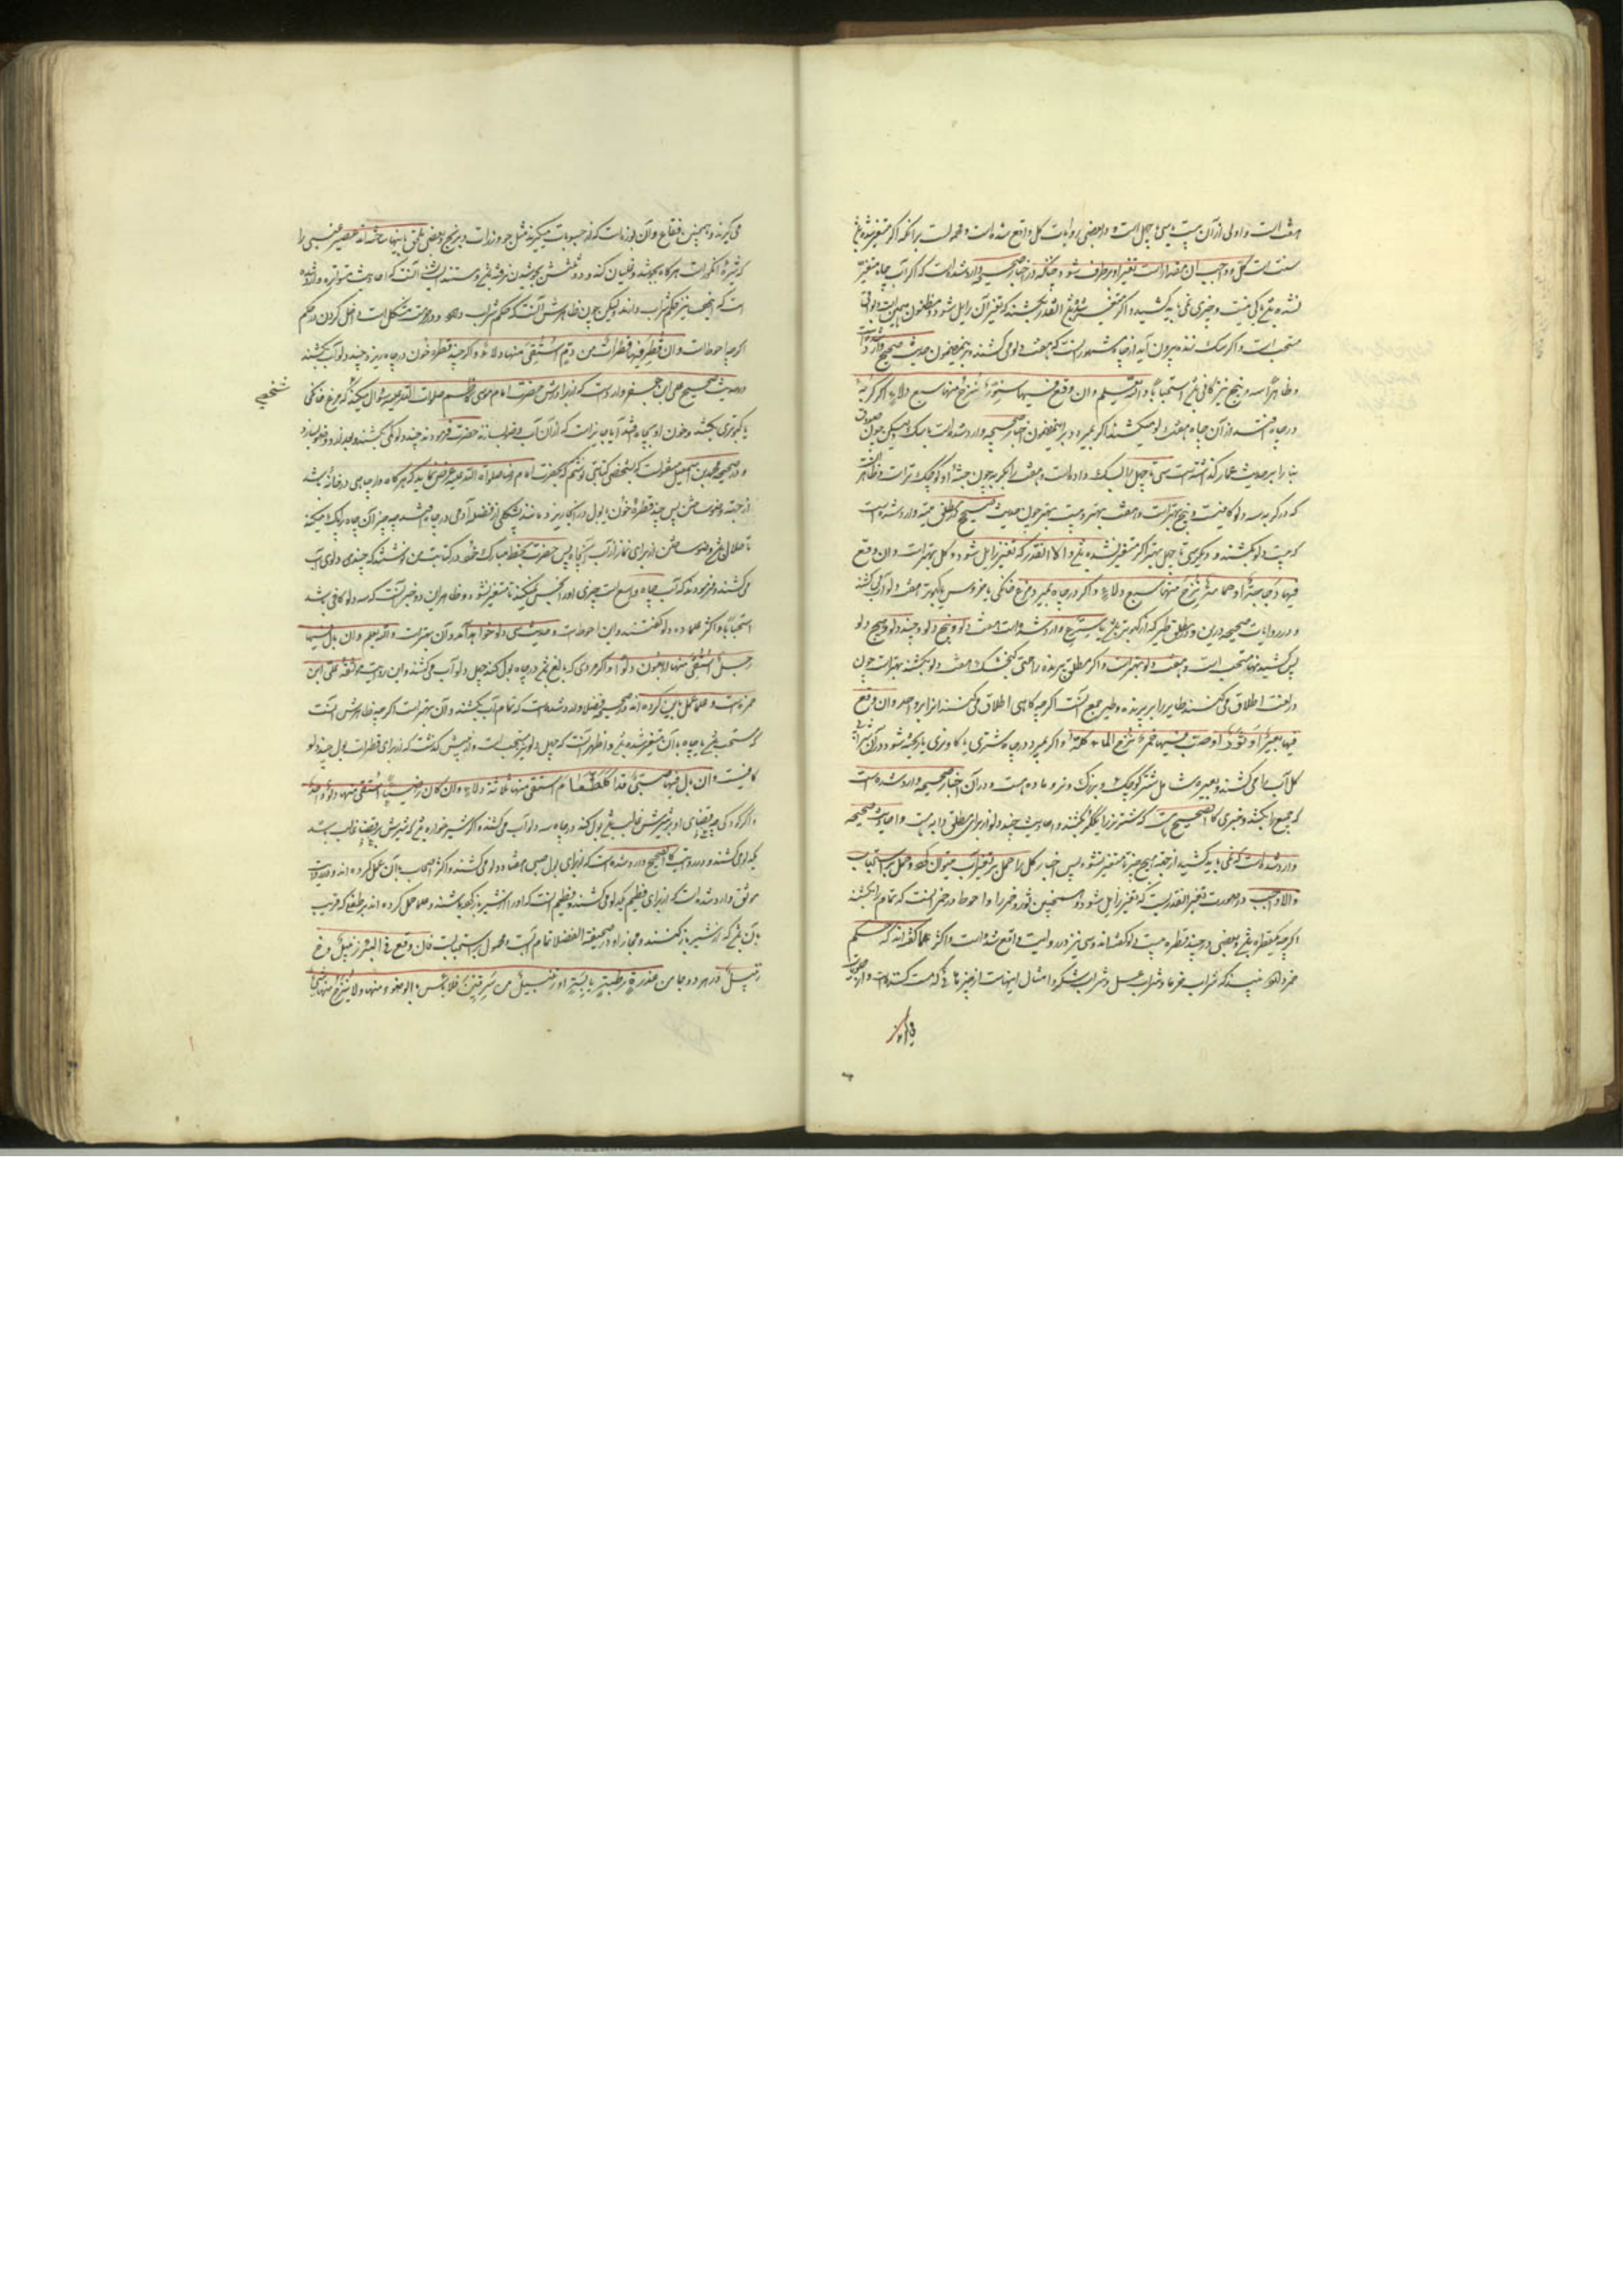 هفت است و اولی از آن بیست یا سی یا چهل است و در بعضی روایات کل واقع شده است و محمولست بر آنکه اگر متغیر شده باشد
سنت است کل و واجب آن مقدار است تغیر او برطرف شود چنانکه در اخبار صحیحه وارد شده است که اگر آب چاه متغیر
نشده باشد باکی نیست و چیزی نمی باید کشید و اگر متغیر شود آنقدر بکشند که تغیر آن زایل شود و مظنون اینست که باقی
مستحب است و اگر سگ زنده بیرون آید از چاه مشهور آنست که هفت دلو می کشند و برین مضمون حدیث صحیح وارد شده است
و ظاهراً سه و پنج نیز کافی باشد استحباباً والله یعلم وان وقع فیها سنور نزح منها سبع دلاء و اگر گربه
در چاه افتد از آن چاه هفت دلو میکشند اگر بمیرد و برین مضمون اخبار صحیحه وارد شده است با سگ لیکن چون صدوق
بنا را بر حدیث عمار گذاشته است سی تا چهل را بسگ داده است و هفت را بگربه چون جثه او کوچک تر است و ظاهر آنست
که در گربه سه دلو کافیست و پنج بهتر است و هفت بهتر و بیست بهتر چون حدیث صحیح در مطلق میته وارد شده است
که بیست دلو بکشند و دیگر سی تا چهل بهتر اگر متغیر نشده باشد والا آنقدر که تغیر زایل شود و کل بهتر است وان وقع
فیها دجاجة او حمامة نزح منها سبع دلاء و اگر در چاه بمیرد مرغ خانگی یا خروس یا کبوتر هفت دلو آب می کشند
و در روایات صحیحه درین دو و مطلق طیر که از کبوتر باشد تا شترمرغ وارد شده است هفت دلو و پنج دلو و چند دلو و پنج دلو
پس کشیدنها مستحب است و هفت دلو بهتر است و اگر مطلق پرنده را حتی گنجشک هفت دلو بکشند بهتر است چون
در لغت اطلاق می کنند طایر را بر پرنده و طیر جمع آنست اگر چه گاهی اطلاق می کنند آنرا بر واحد وان وقع
فیها بعیر او ثور او صب فیها خمر نزح الماء کله و اگر بمیرد در چاه شتری یا گاوی یا ریخته شود در آن شراب
کل آب را می کشند و بعیر شامل شتر کوچک و بزرگ و نر و ماده هست و در آن اخبار صحیحه وارد شده است
که جمیع را بکشند و خبری کالصحیح هست که شتر نر را یک کر بکشند و احادیث چند دلو از برای مطلق دابه هست و احادیث صحیحه
وارد شده است که نمی باید کشید از جهة هیچ چیز تا متغیر نشود پس اخبار کل را حمل بر تغیر آب میتوان کرد و حمل بر استحباب
والا واجب در صورت تغیر آنقدریست که تغیر زایل شود و همچنین ثور و خمر را و احوط در خمر آنست که تمام را بکشند
اگر چه یکقطره باشد و بعضی در چند قطره بیست دلو گفته اند و سی نیز در روایت واقع شده است و اکثر علما گفته اند که حکم
خمر دارد نبیذ که شراب خرما و شراب عسل و شراب شکر و امثال اینهاست از چیزهائی که مست کننده است و از جو
فرا
می گیرند و همچنین فقاع و آن بوزه است که از حبوبات میگیرند مثل جو و ذرات و برنج و بعضی ملحق باینها ساخته اند عصیر عنبی را
که شیره انگور است هرگاه بجوشد و غلیان کند و دو ثلثش بجوشیدن نرفته باشد و مستند ایشان آنست که احادیث متواتره وارد شده
است که اینها نیز حکم شراب دارند لیکن چون ظاهرش آنست که حکم شراب دارد در حرمت مشکل است داخل کردن در حکم
اگر چه احوط است وان قطر فیها قطرات من دم استقی منها دلاء و اگر چند قطره خون در چاه ریزد چند دلو آب بکشند
و در حدیث صحیح علی ابن جعفر وارد است که از برادرش حضرت امام موسی کاظم صلوات الله علیه سؤال میکند که شخصی مرغ خانگی
یا کبوتری بکشد و خون او بچاه افتد آیا جایز است که از آن آب وضو بسازند حضرت فرمودند چند دلوکی بکشند و بعد از آن وضو بسازد
و در صحیحه محمد بن اسمعیل منقولست که بشخصی کتابتی نوشتم که بحضرت امام رضا صلوات الله علیه عرض نماید که هرگاه در چاهی در خانه باشد
از جهة وضو ساختن پس چند قطره خون یا بول در آنجا ریزد یا مانند پشکلی از فضله آدمی در چاه افتد چه چیز آن چاه را پاک میکند
تا حلال باشد وضو ساختن از برای نماز از آب آنچاه پس حضرت بخط مبارک خود در کتابت من نوشتند که چندی دلوی آب
می کشند و فرمودند که آب چاه واسع است چیزی او را نجس نمیکند تا متغیر نشود و ظاهر این دو خبر آنست که سه دلو کافی باشد
استحباباً و اکثر علما ده دلو گفته اند و این احوط است و حدیث سی دلو خواهد آمد و آن بهتر است والله یعلم وان بال فیها
رجل استقی منها اربعون دلواً و اگر مردی که بالغ باشد در چاه بول کند چهل دلو آب می کشند و این روایت موثقه علی ابن
حمزه است و علما عمل باین کرده اند و در صحیحه فضلا وارد شده است که تمام آب بکشند و آن بهتر است اگر چه ظاهرش آنست
که مستحب باشد یا چاه بآن متغیر شده باشد و اظهر آنست که چهل دلو نیز مستحب است و از پیش گذشت که از برای قطرات بول چند دلو
کافیست وان بال فیها صبی قد اکل الطعام استقی منها ثلاثة دلاء وان کان رضیعاً استقی منها دلو واحد
و اگر کودکی که غذای او بر شیرش غالب باشد بول کند در چاه سه دلو آب می کشند و اگر شیرخواره باشد که شیرش بر غذا غالب باشد
یک دلو می کشند و در روایت کالصحیح وارد شده است که از برای بول صبی هفت دلو می کشند و اکثر اصحاب بآن عمل کرده اند و در حدیث
موثق وارد شده است که از برای فطیم یک دلو می کشند و فطیم آنست که او را از شیر باز گرفته باشند و علما حمل کرده اند بر طفلی که قریب
بآن باشد که از شیر باز کنند و مجازاً و در صحیفة الفضلا تمام آب و محمول بر استحبابست فان وقع فی البئر زنبیل و خ
زنبیل در هر دو جا من عذرة رطبة او یابسة او زنبیل من سرقین فلا باس بالوضوء منها ولا ینزح منها شئ
شخصی